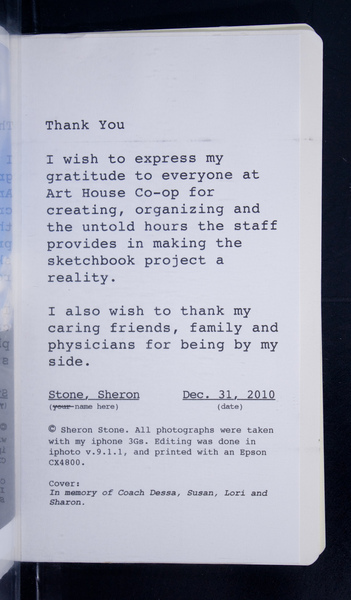 Thank You
I wish to express my
gratitude to everyone at
Art House Co-op for
creating, organizing and
the untold hours the staff
provides in making the
sketchbook project a
reality.
I also wish to thank my
caring friends, family and
physicians for being by my
side.
Stone, Sheron Dec. 31, 2010
(your name here) (date)
© Sheron Stone. All photographs were taken
with my iphone 3Gs. Editing was done in
iphoto v.9.1.1, and printed with an Epson
CX4800.
Cover:
In memory of Coach Dessa, Susan, Lori and
Sharon.